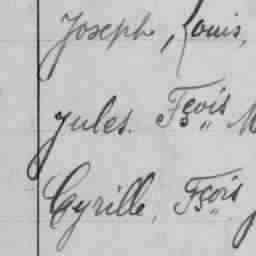 Joseph, Louis,
Jules. Fçois M
Cyrille, Fçois